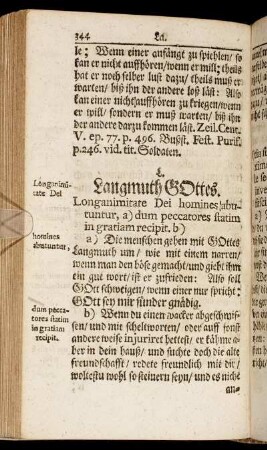 344 La.
le; Wenn einer anfängt zu spiehlen/ so
kan er nicht auffhören/ wenn er will; theils
hat er noch selber lust dazu/ theils muß er
warten/ biß ihn der andere loß läst: Also
kan einer nicht auffhören zu kriegen/ wenn
er will/ sondern er muß warten/ biß ihn
der andere darzu kommen läst. Zeil. Cent.
V. ep. 77. p. 496. Bußst. Fest. Purif.
p. 246. vid. tit. Soldaten.
L.
Langmuth GOttes.
Longanimitate Dei
Longanimitate Dei homines abu-
tuntur, a) dum peccatores statim
in gratiam recipit. b)
homines abutuntur,
a) Die menschen gehen mit GOttes
Langmuth um/ wie mit einem narren/
wenn man den böse gemacht/ und giebt ihm
ein gut wort/ ist er zufrieden: Also soll
GOtt schweigen/ wenn einer nur spricht:
GOtt sey mir sünder gnädig.
dum peccatores statim in gratiam recipit.
b) Wenn du einen wacker abgeschmis-
sen/ und mit scheltworten/ oder auff sonst
andere weise injuriret hettest/ er kähme a-
ber in dein hauß/ und suchte doch die alte
freundschafft/ redete freundlich mit dir/
woltestu wohl so steinern seyn/ und es nicht
an-